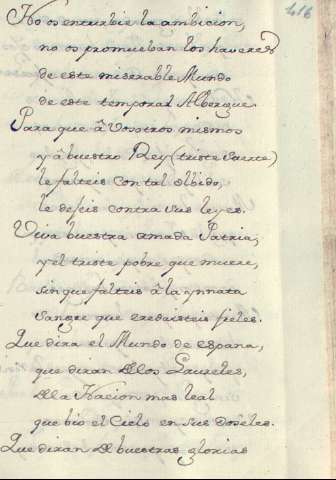 416
No os enturbie la ambicion,
no os promueban los haveres
de este miserable Mundo
de este temporal Albergue.
Para que â vosotros mismos
y â buestro Rey (triste suerte)
le falteis con tal olbido,
le dejeis contra sus leyes.
Viva buestra amada Patria,
y el triste pobre que muere,
sin que falteis â la ynnata
sangre que eredasteis fieles.
Que dira el Mundo de españa,
que diran de los
de la Nacion mas leal
que bio el Cielo en sus doseles.
Que diran de buestras glorias